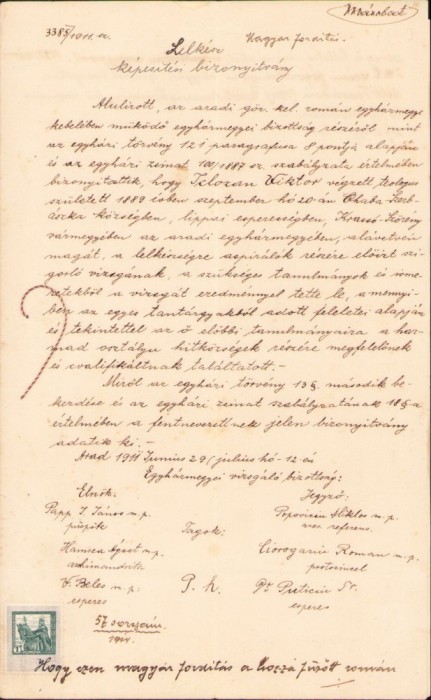 Másolat
3385/1911 sz. Magyar fordítás.
Lelkész
képesítési bizonyítvány
Alulirott, az aradi gör. kel. román egyházmegye
kebelében működő egyházmegyei bizottság részéről mint
az egyházi törvény 12 § paragrafusa 8 pontja alapján
és az egyházi zsinat 100/1887 sz. szabályzata értelmében
bizonyittatik, hogy Viktor végzett, teologus
született 1889 évben september hó 20-án
községben, lippai esperességben, Krassó-Szörény
vármegyében az aradi egyházmegyében, alávetvén
magát, a lelkészségre aspirálók részére előirt szi-
gorló vizsgának, a szükséges tanulmányok és isme-
retekből a vizsgát eredménnyel tette le, a mennyi-
ben az egyes tantárgyakból adott feleletei alapján
és tekintettel az ő előbbi tanulmányaira a har-
mad osztályu hitközségek részére megfelelőnek
és kvalifikáltnak találtatott.-
Miről az egyházi törvény 13 § második be-
kezdése és az egyházi zsinat szabályzatának 18 §-a
értelmében a fentnevezettnek jelen bizonyitvány
adatik ki.-
Arad 1911 Junius 29/julius hó 12 én
Egyházmegyei vizsgáló bizottság:
Elnök: Jegyző:
Papp I. János m.p. Popoviciu Miklos m.p.
püspök referens.
Tagok:
Hamsea Ágost m.p. Ciorogariu Roman m.p.
archimandrita protosincel
V. Beles m.p. P. h. Dr Puticiu Tr.
esperes esperes
57 sorszám.
1911.
Hogy ezen magyar fordítás a hozzá fűzött román